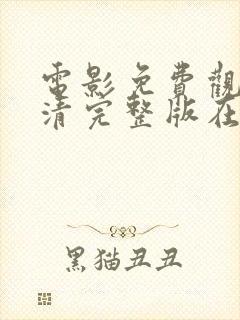 電影免費觀
清完整版在
黑猫丑丑